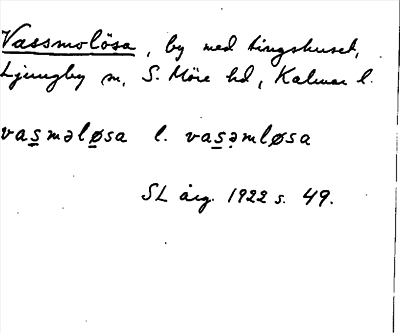 Vassmolösa, by med tingshuset,
Ljungby sn, S. Möre hd, Kalmar l.
vas̲məlø̲sa l. vas̲əmløsa
SL årg. 1922 s. 49.